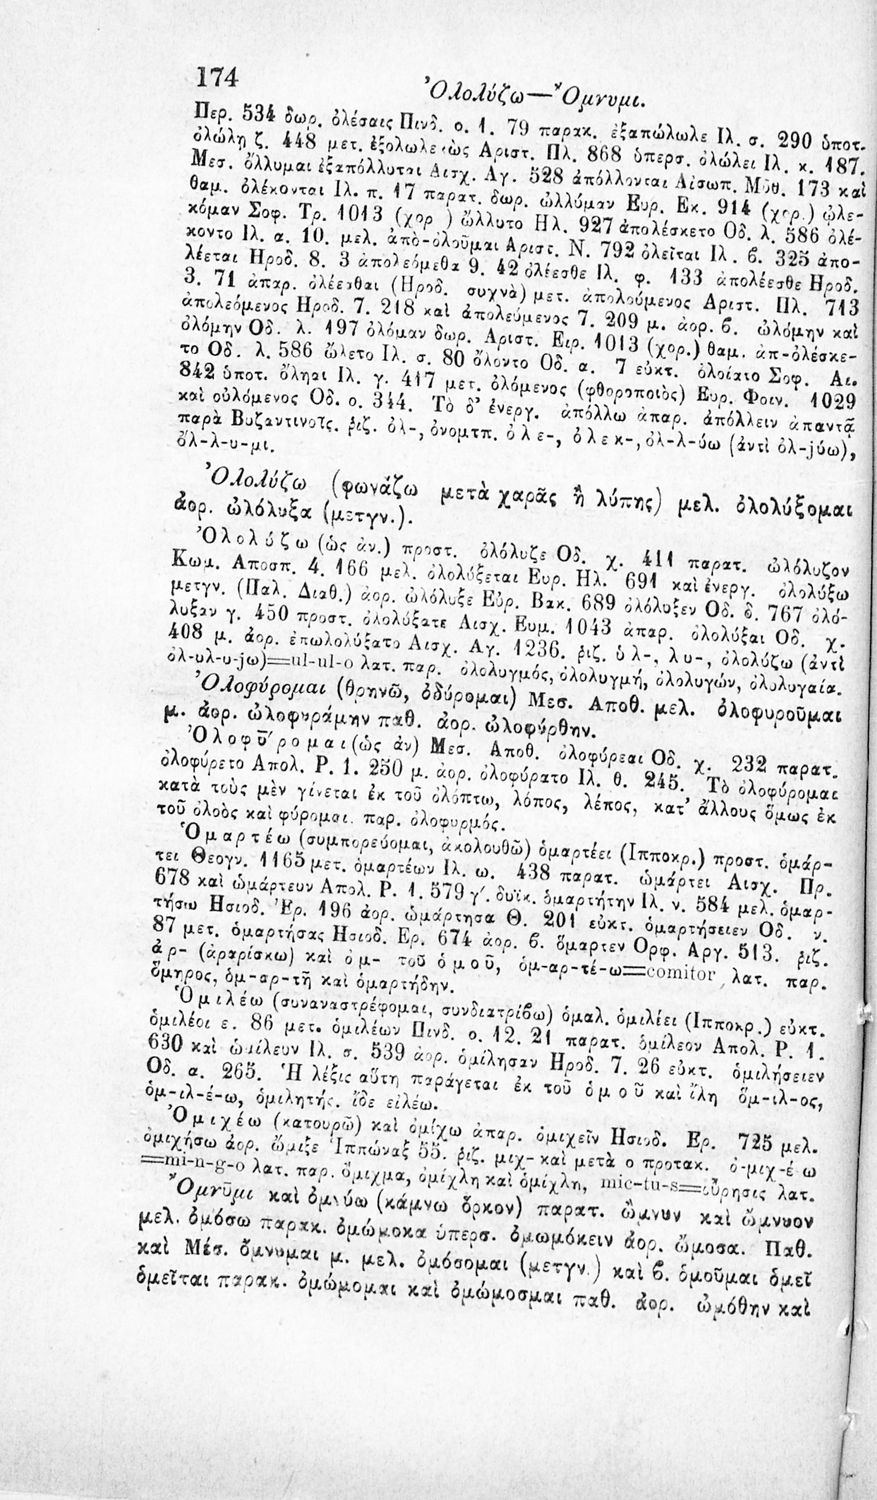 174
Ὀλολύζω—Ὄμνυμι.
Περ. 534 δωρ. ὀλέσαις Πινδ. ο. 1. 79 παρακ. ἐξαπώλωλε Ιλ. σ. 290 ὑποτ.
ὀλώλῃ ζ. 448 μετ. ἐξολωλεκὼς Αριστ. Πλ. 868 ὑπερσ. ὀλώλει Ιλ. κ. 187.
Μεσ. ὄλλυμαι ἐξαπόλλυται Αισχ. Αγ. 528 ἀπόλλονται Αἰσωπ. Μῦθ. 173 καὶ
θαμ. ὀλέκονται Ιλ. π. 17 παρατ. δωρ. ὠλλύμαν Ευρ. Εκ. 914 (χορ.) ὠλε-
κόμαν Σοφ. Τρ. 1013 (χορ.) ὤλλυτο Ηλ. 927 ἀπολέσκετο Οδ. λ. 586 ὀλέ-
κοντο Ιλ. α. 10. μελ. ἀπὸ-ὀλοῦμαι Αριστ. Ν. 792 ὀλεῖται Ιλ. β. 325 ἀπο-
λέεται Ηροδ. 8. 3 ἀπολεόμεθα 9. 42 ὀλέεσθε Ιλ. φ. 133 ἀπολέεσθε Ηροδ.
3. 71 ἀπαρ. ὀλέεσθαι (Ηροδ. συχνὰ) μετ. ἀπολούμενος Αριστ. Πλ. 713
ἀπολεόμενος Ηροδ. 7. 218 καὶ ἀπολεύμενος 7. 209 μ. ἀορ. β. ὠλόμην καὶ
ὀλόμην Οδ. λ. 197 ὀλόμαν δωρ. Αριστ. Ειρ. 1013 (χορ.) θαμ. ἀπ-ολέσκε-
το Οδ. λ. 586 ὤλετο Ιλ. σ. 80 ὄλοντο Οδ. α. 7 εὐκτ. ὀλοίατο Σοφ. Αι.
842 ὑποτ. ὄληαι Ιλ. γ. 417 μετ. ὀλόμενος (φθοροποιὸς) Ευρ. Φοιν. 1029
καὶ οὐλόμενος Οδ. ο. 344. Τὸ δ' ἐνεργ. ἀπόλλω ἀπαρ. ἀπόλλειν ἀπαντᾷ
παρὰ Βυζαντινοῖς. ῥιζ. ὀλ-, ὀνομτπ. ὀλε-, ὀλεκ-, ὀλ-λ-ύω (ἀντὶ ὀλ-jύω),
ὄλ-λ-υ-μι.
Ὀλολύζω (φωνάζω μετὰ χαρᾶς ἢ λύπης) μελ. ὀλολύξομαι
ἀορ. ὠλόλυξα (μετγν.).
Ὀλολύζω (ὡς ἀν.) προστ. ὀλόλυζε Οδ. χ. 411 παρατ. ὠλόλυζον
Κωμ. Αποσπ. 4. 166 μελ. ὀλολύξεται Ευρ. Ηλ. 691 καὶ ἐνεργ. ὀλολύξω
μετγν. (Παλ. Διαθ.) ἀορ. ὠλόλυξε Εὐρ. Βακ. 689 ὀλόλυξεν Οδ. δ. 767 ὀλό-
λυξαν γ. 450 προστ. ὀλολύξατε Αισχ. Ευμ. 1043 ἀπαρ. ὀλολύξαι Οδ. χ.
408 μ. ἀορ. ἐπωλολύξατο Αισχ. Αγ. 1236. ῥιζ. ὐλ-, λυ-, ὀλολύζω (ἀντὶ
ὀλ-υλ-υ-jω)=ul-ul-o λατ. παρ. ὀλολυγμός, ὀλολυγμή, ὀλολυγών, ὀλολυγαία.
Ὀλοφύρομαι (θρηνῶ, ὀδύρομαι) Μεσ. Αποθ. μελ. ὀλοφυροῦμαι
μ. ἀορ. ὠλοφυράμην παθ. ἀορ. ὠλοφύρθην.
Ὀλοφῡ́ρομαι (ὡς ἀν) Μεσ. Αποθ. ὀλοφύρεαι Οδ. χ. 232 παρατ.
ὀλοφύρετο Απολ. Ρ. 1. 250 μ. ἀορ. ὀλοφύρατο Ιλ. θ. 245. Τὸ ὀλοφύρομαι
κατὰ τοὺς μὲν γίνεται ἐκ τοῦ ὀλόπτω, λόπος, λέπος, κατ' ἄλλους ὅμως ἐκ
τοῦ ὀλοὸς καὶ φύρομαι. παρ. ὀλοφυρμός.
Ὁμαρτέω (συμπορεύομαι, ἀκολουθῶ) ὁμαρτέει (Ιπποκρ.) προστ. ὁμάρ-
τει Θεογν. 1165 μετ. ὁμαρτέων Ιλ. ω. 438 παρατ. ὡμάρτει Αισχ. Πρ.
678 καὶ ὡμάρτευν Απολ. Ρ. 1. 579 γ'. δυϊκ. ὁμαρτήτην Ιλ. ν. 584 μελ. ὁμαρ-
τήσω Ησιοδ. Ἐρ. 196 ἀορ. ὡμάρτησα Θ. 201 εὐκτ. ὁμαρτήσειεν Οδ. ν.
87 μετ. ὁμαρτήσας Ησιοδ. Ερ. 674 ἀορ. β. ὅμαρτεν Ορφ. Αργ. 513. ῥιζ.
ἀρ- (ἀραρίσκω) καὶ ὁμ- τοῦ ὁμοῦ, ὁμ-αρ-τέ-ω=comitor λατ. παρ.
ὅμηρος, ὁμ-αρ-τῆ καὶ ὁμαρτήδην.
Ὁμιλέω (συναναστρέφομαι, συνδιατρίβω) ὁμαλ. ὁμιλέει (Ιπποκρ.) εὐκτ.
ὁμιλέοι ε. 86 μετ. ὁμιλέων Πινδ. ο. 12. 21 παρατ. ὁμίλεον Απολ. Ρ. 1.
630 καὶ ὡμίλευν Ιλ. σ. 539 ἀορ. ὁμίλησαν Ηροδ. 7. 26 εὐκτ. ὁμιλήσειεν
Οδ. α. 265. Ἡ λέξις αὕτη παράγεται ἐκ τοῦ ὁμοῦ καὶ ἴλη ὅμ-ιλ-ος,
ὁμ-ιλ-έ-ω, ὁμιλητής. ἴδε εἰλέω.
Ὀμιχέω (κατουρῶ) καὶ ὀμίχω ἀπαρ. ὀμιχεῖν Ησιοδ. Ερ. 725 μελ.
ὀμιχήσω ἀορ. ὤμιξε Ἱππώναξ 55. ῥιζ. μιχ- καὶ μετὰ ο προτακ. ὀ-μιχ-έ ω
=mi-n-g-o λατ. παρ. ὄμιχμα, ὀμίχλη καὶ ὁμίχλη, mic-tu-s=οὔρησις λατ.
Ὄμνῡμι καὶ ὀμνύω (κάμνω ὅρκον) παρατ. ὤμνυν καὶ ὤμνυον
μελ. ὀμόσω παρακ. ὀμώμοκα ὑπερσ. ὀμωμόκειν ἀορ. ὤμοσα. Παθ.
καὶ Μέσ. ὄμνυμαι μ. μελ. ὀμόσομαι (μετγν.) καὶ β. ὀμοῦμαι ὀμεῖ
ὀμεῖται παρακ. ὀμώμομαι καὶ ὀμώμοσμαι παθ. ἀορ. ὠμόθην καὶ